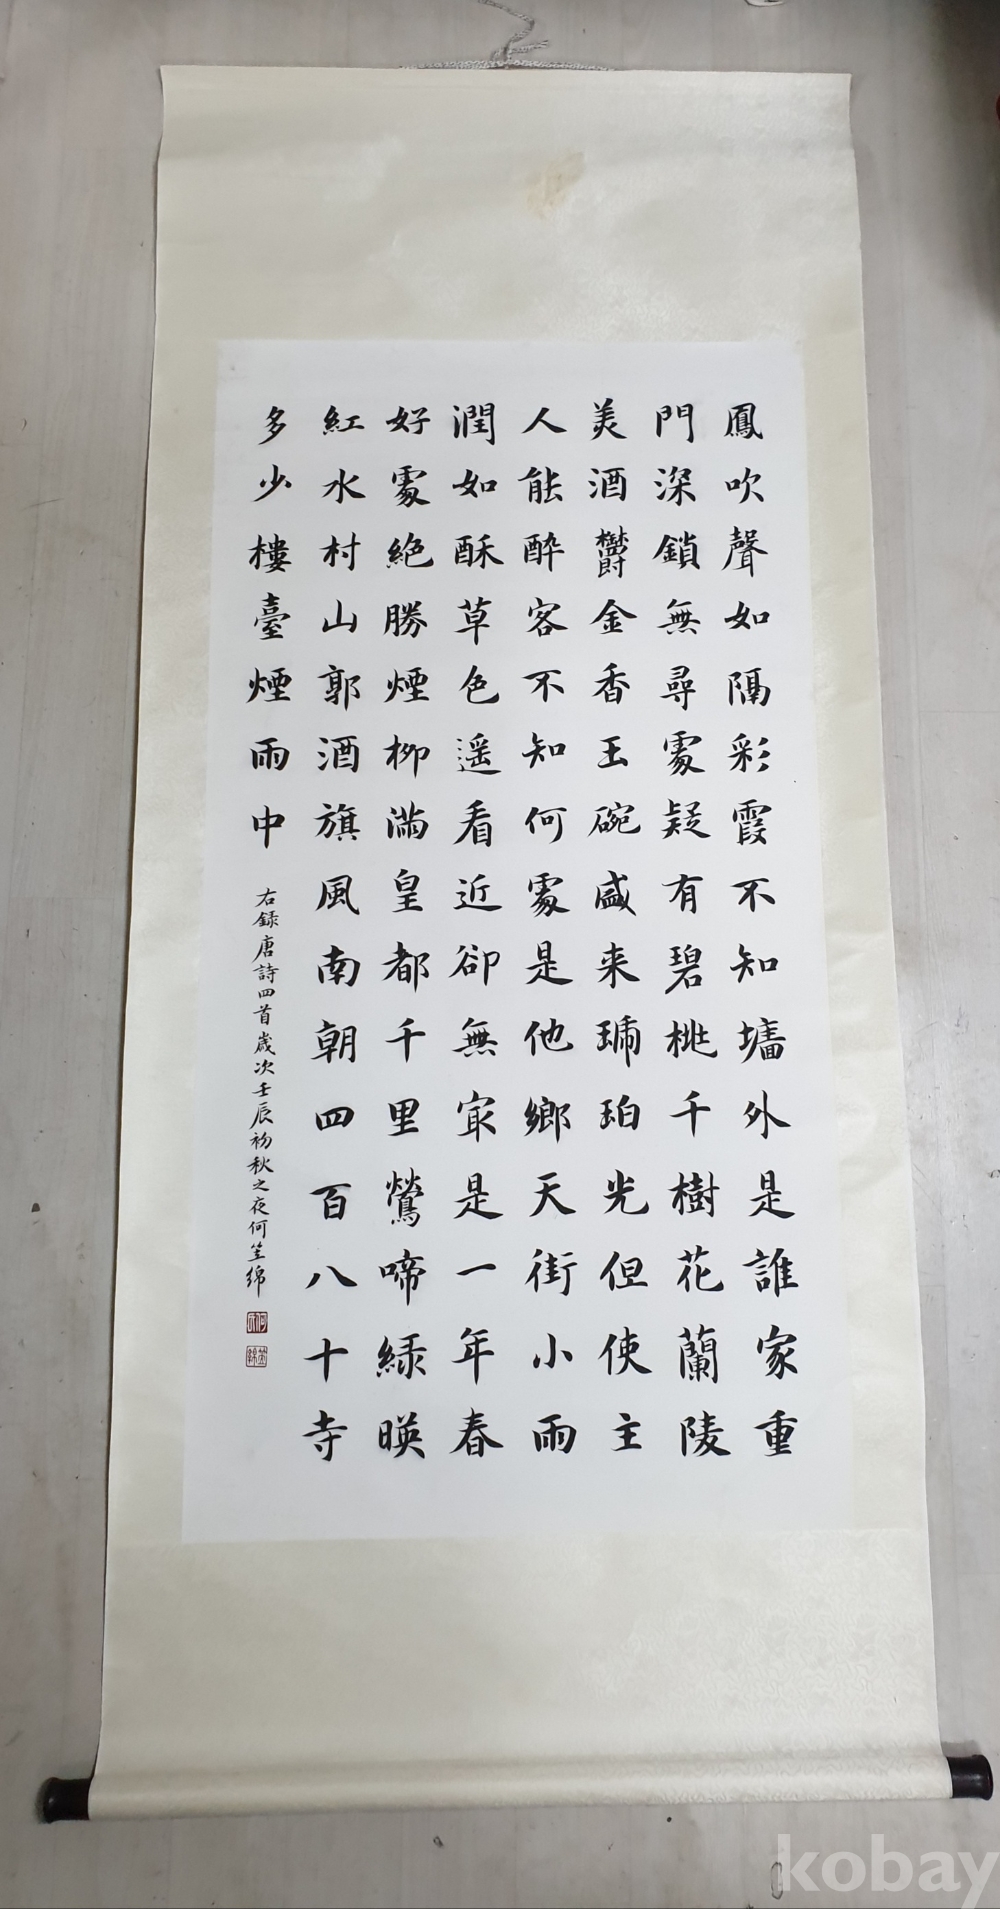 鳳吹聲如隔彩霞不知墻外是誰家重
門深鎖無尋處疑有碧桃千樹花蘭陵
美酒欝金香玉碗盛来琥珀光但使主
人能醉客不知何處是他鄉天街小雨
潤如酥草色遥看近卻無冣是一年春
好處絕勝煙柳滿皇都千里鶯啼綠暎
紅水村山郭酒旗風南朝四百八十寺
多少樓臺煙雨中
右録唐詩四首歳次壬辰初秋之夜何笠綿
kobay